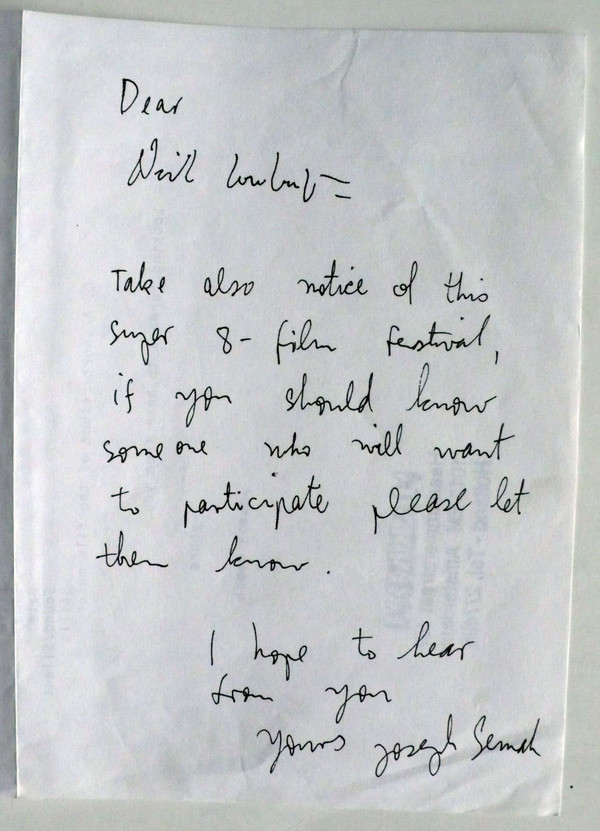 Dear
Take also notice of this
super 8- film festival,
if you should know
someone who will want
to participate please let
them know.
I hope to hear
from you
Yours Joseph Semah